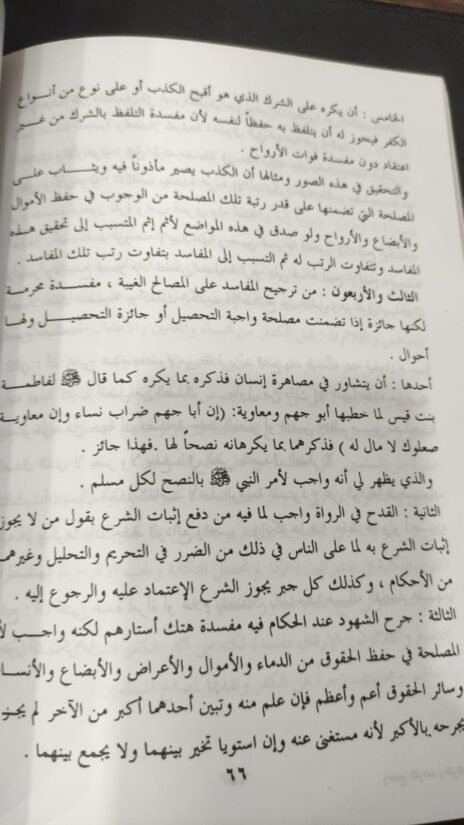 الخامس : أن يكره على الشرك الذي هو أقبح الكذب أو على نوع من أنواع
الكفر فيجوز له أن يتلفظ به حفظاً لنفسه لأن مفسدة التلفظ بالشرك من غير
اعتقاد دون مفسدة فوات الأرواح .
والتحقيق في هذه الصور ومثالها أن الكذب يصير مأذوناً فيه ويثاب على
المصلحة التي تضمنها على قدر رتبة تلك المصلحة من الوجوب في حفظ الأموال
والأبضاع والأرواح ولو صدق في هذه المواضع لأثم إثم المتسبب إلى تحقيق هذه
المفاسد وتتفاوت الرتب له ثم التسبب إلى المفاسد بتفاوت رتب تلك المفاسد .
الثالث والأربعون : من ترجيح المفاسد على المصالح الغيبة ، مفسدة محرمة
لكنها جائزة إذا تضمنت مصلحة واجبة التحصيل أو جائزة التحصيل ولها
أحوال .
أحدها : أن يتشاور في مصاهرة إنسان فذكره بما يكره كما قال ﷺ لفاطمة
بنت قيس لما خطبها أبو جهم ومعاوية: (إن أبا جهم ضراب نساء وإن معاوية
صعلوك لا مال له ) فذكرهما بما يكرهانه نصحاً لها .فهذا جائز .
والذي يظهر لي أنه واجب لأمر النبي ﷺ بالنصح لكل مسلم .
الثانية : القدح في الرواة واجب لما فيه من دفع إثبات الشرع بقول من لا يجوز
إثبات الشرع به لما على الناس في ذلك من الضرر في التحريم والتحليل وغيرهما
من الأحكام ، وكذلك كل جبر يجوز الشرع الإعتماد عليه والرجوع إليه .
الثالثة : جرح الشهود عند الحكام فيه مفسدة هتك أستارهم لكنه واجب لأ
المصلحة في حفظ الحقوق من الدماء والأموال والأعراض والأبضاع والأنسا
وسائر الحقوق أعم وأعظم فإن علم منه وتبين أحدهما أكبر من الآخر لم يجـز
يجرحه بالأكبر لأنه مستغنى عنه وإن استويا تخير بينهما ولا يجمع بينهما .
٦٦